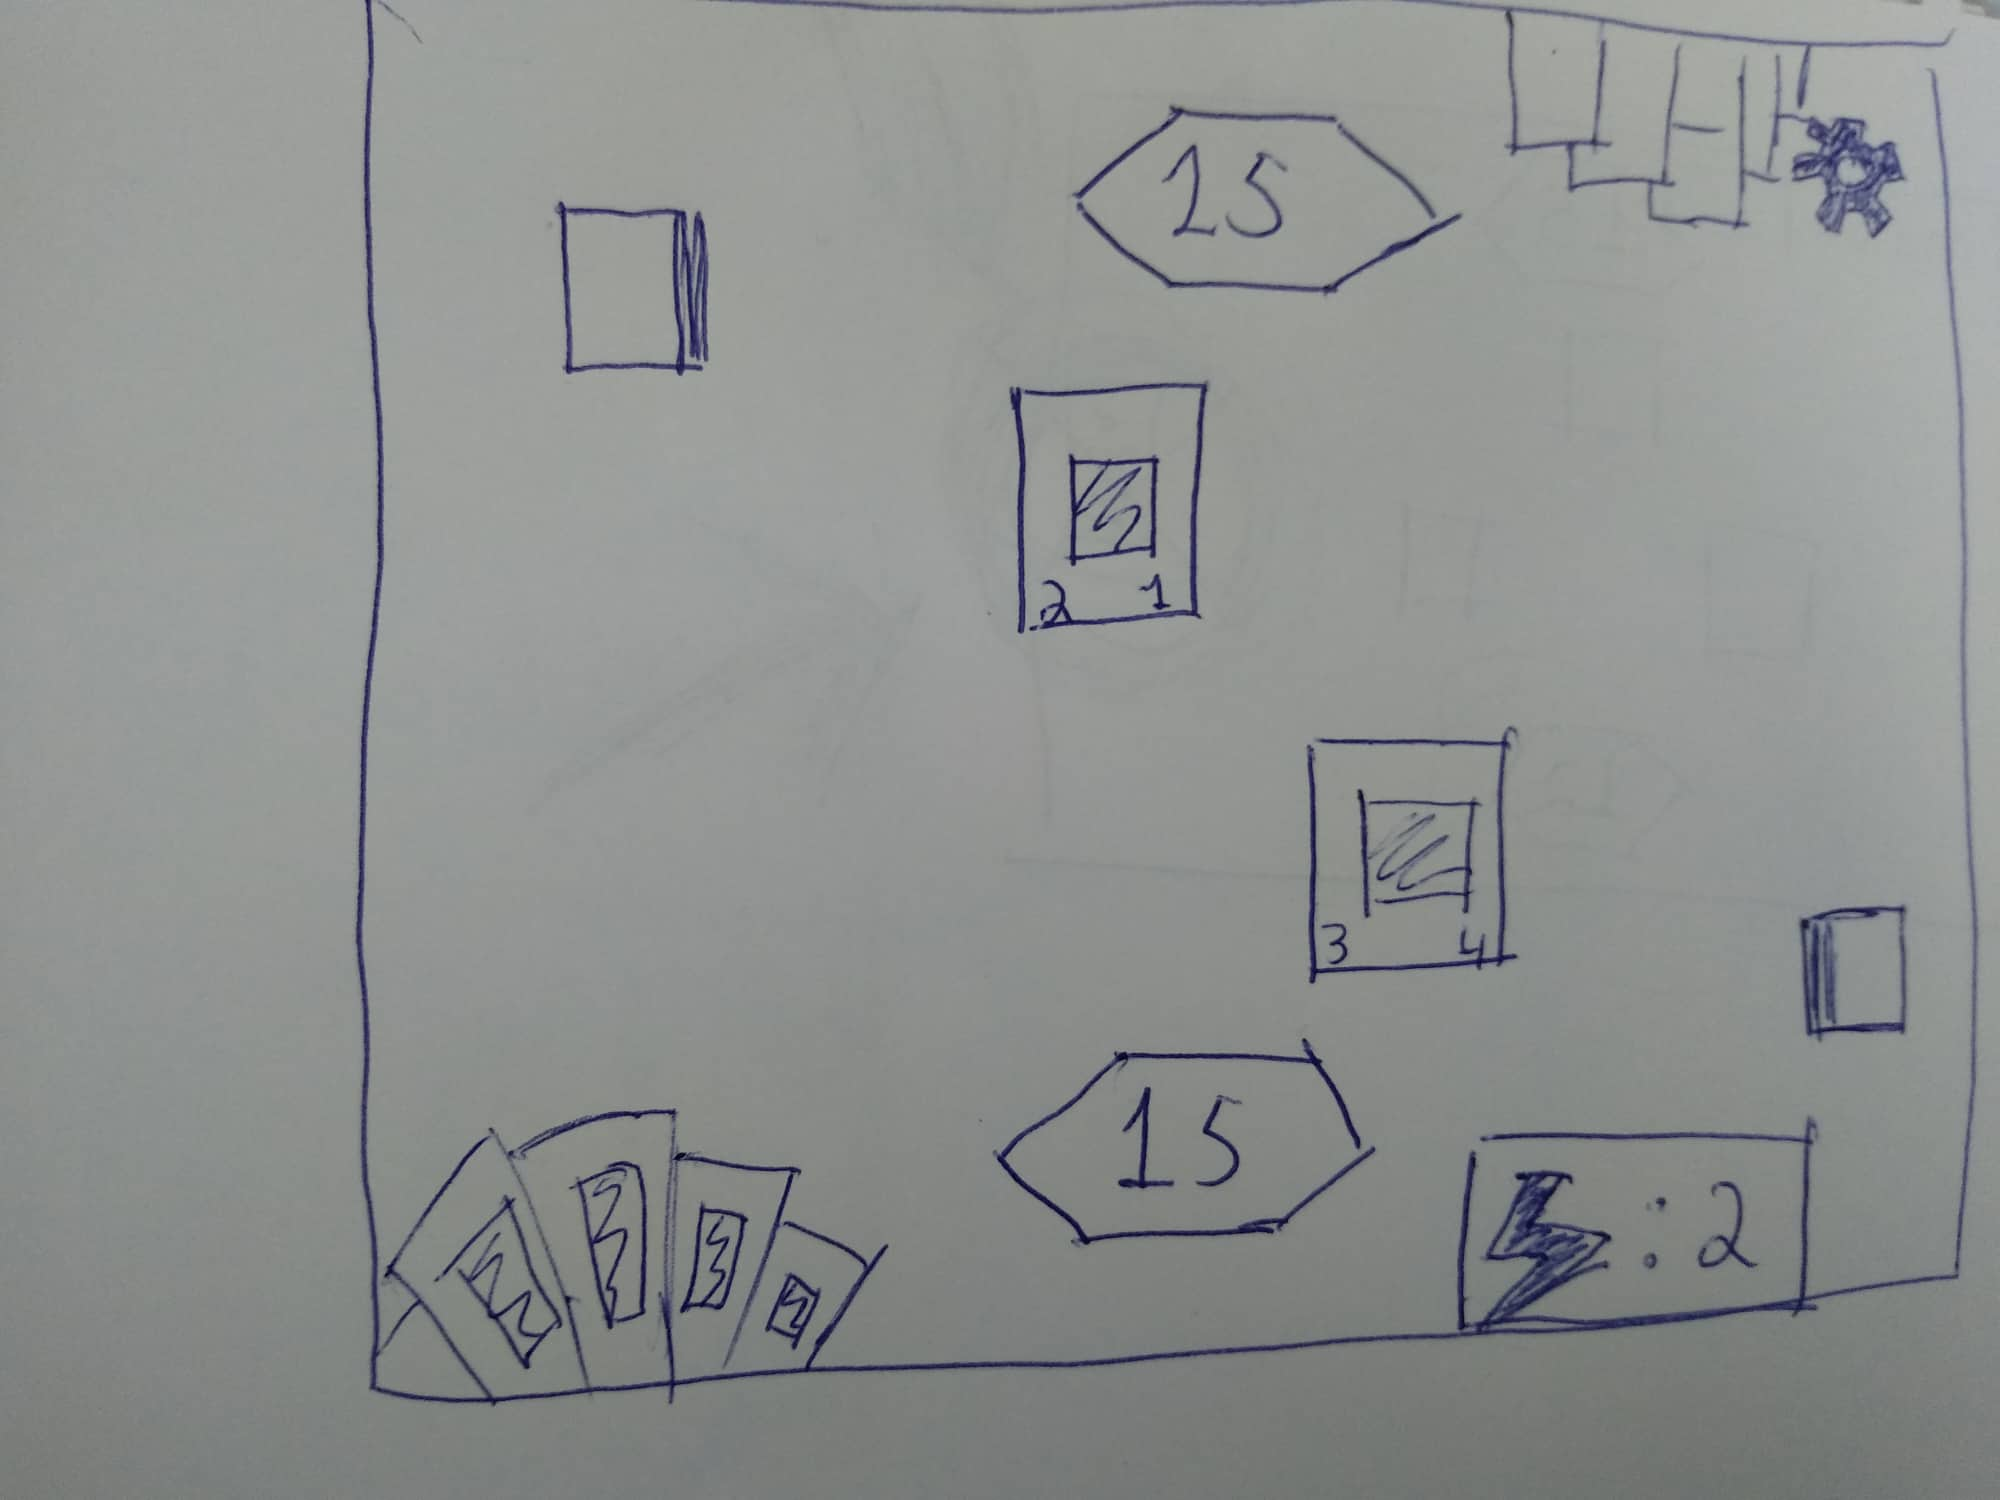 25
2 1
3 4
15
: 2